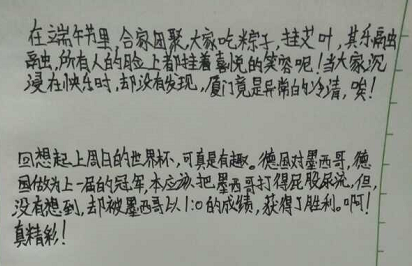 在端午节里,合家团聚,大家吃粽子,挂艾叶,其乐融
融,所有人的脸上都挂着喜悦的笑容呢!当大家沉
浸在快乐时,却没有发现,厦门竟是异常的冷清,唉!
回想起上周日的世界杯,可真是有趣。德国对墨西哥,德
国做为上一届的冠军,本应该把墨西哥打得屁股尿流,但,
没有想到,却被墨西哥以1:0的成绩,获得了胜利。啊!
真精彩!